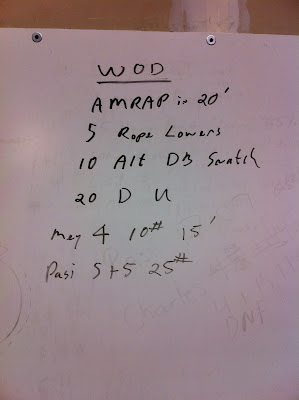 WOD
AMRAP in 20'
5 Rope Lowers
10 Alt DB Snatch
20 D U
Mey 4 10# 15'
Pasi 5+5 25#
DNF